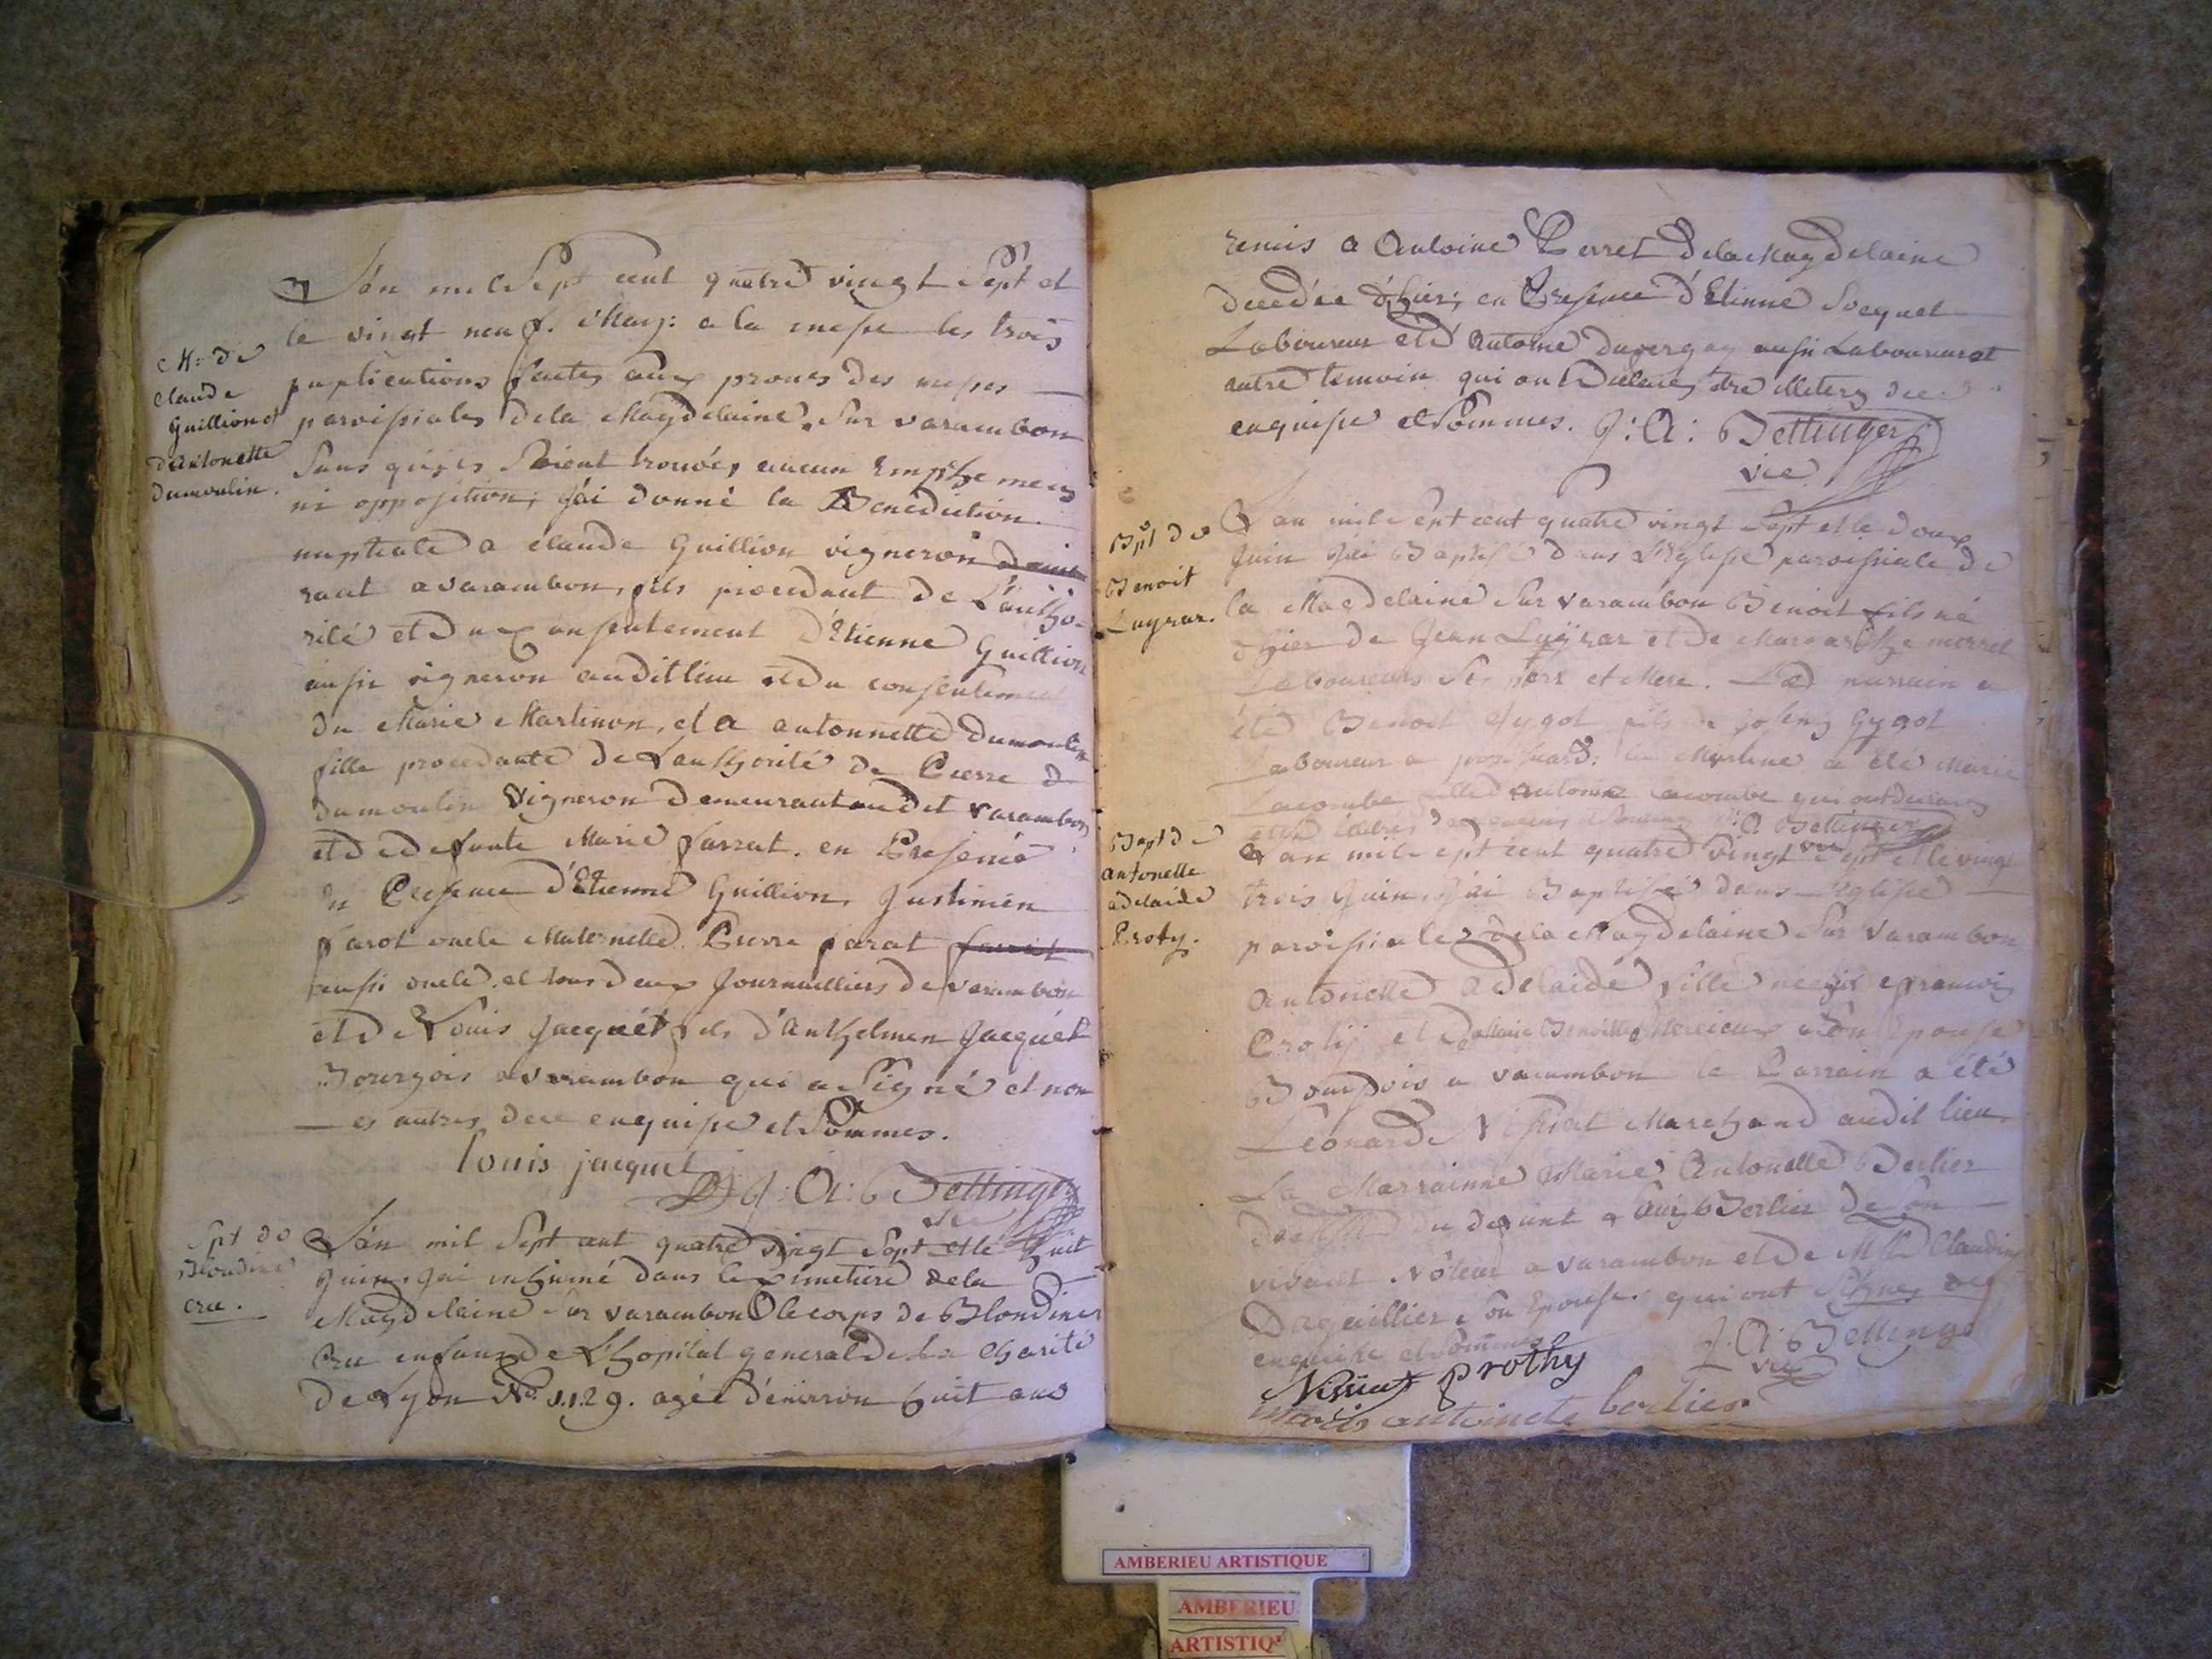 L'an mil Sept cent quatre vingt Sept et
le vingt neuf. May: a la messe les trois
M: de
Claude
Guillion et
d'Antonette
dumoulin.
puplications faites aux prones des messes
paroissiales dela Magdelaine Sur varambon
Sans qu'ils Soient trouvés aucun
ni opposition; J'ai donné la Benediction
nuptiale a claude Guillion vigneron
rant a varambon, fils procedant de L'autho-
rité et du consentement d'Etienne Guillion
aussi vigneron auditlieu et du consentement
du Marie Martinon, et a antonnette dumoulin
fille procedante de L'authorité de Pierre d
dumoulin Vigneron demeurant audit varambon
et de defunte Marie farrat. en Presence
de Presence d'Etienne Guillion, Justinien
farot oncle Maternelle. Pierre farat
aussi oncle. et tous deux Journailliers de varambon
et de Louis Jacquét fils d'Anthelmen Jacquét
Bourgois a varambon qui a Signé et non
es autres de ce enquise et Sommes.
louis jacquet
J: A: Bettinger
vic
Spt de
Blondine
cru.
L'an mil Sept cent quatre vingt Sept et le huit
Juin, J'ai inhumé dans le Simetiere dela
Magdelaine Sur varambon le corps de Blondine
Cru enfant de L'hopital general de la Charité
de Lyon No. 1129. agée d'environ huit ans
remis a Antoine Perret dela Magdelaine
decedée d'hier; en Presence d'Etienne Socquet
Laboureur et d'Antoine dupergay aussi Laboureur et
autre temoin qui ont Declaré etre illeters de ce
enquise et Sommes. J: A: Bettinger
vic
Bpt de
Benoit
Luyrar.
L'an mil Sept cent quatre vingt Sept et le douze
Juin J'ai Baptisé dans L'Eglise paroissiale de
la Magdelaine Sur varambon Benoit fils né
d'hier de Jean Luyrar et de Margarithe merret
Laboureurs Ses pere et Mere. Le parrain a
été Benoit Gygot fils de Joseph Gygot
Laboureur a la Marine a été Marie
Lacombe fille d'Antoine Lacombe qui ont declarés
J: A: Bettinger
vic
Bapt de
antonette
adelaide
Proty.
L'an mil Sept cent quatre vingt Sept et le vingt
trois Juin, J'ai Baptisé dans L'Eglise
paroissiale dela Magdelaine Sur varambon
Antonette Adelaide fille née de françois
Protij et de Marie Benoitte Mercieux Son Epouse
Bourgois a varambon le Parrain a été
Léonarde Marchand audit lieu.
La Marrainne Marie Antonette Berlier
du defunt Berlier de Son
vivant a varambon et de Claudine
Daguillier Son Epouse. qui ont Signes de
enquise et Sommes
J. A. Bettinge
vic
prothy
Marie antoinete berlier
AMBERIEU ARTISTIQUE
AMBERIEU
ARTISTIQ